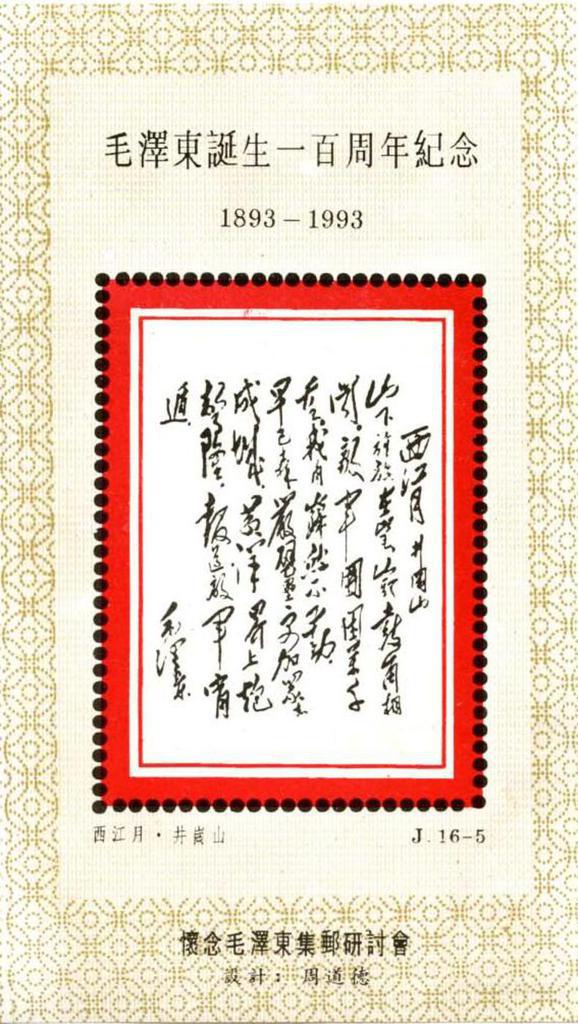 毛澤東誕生一百周年紀念
1893－1993
西江月 井岡山
山下旌旗在望山頭鼓角相
聞敵軍圍困萬千
重我自巋然不動
早已森嚴壁壘更加衆志
成城黃洋界上炮
聲隆報道敵軍宵
遁
毛澤東
西江月·井崗山
J.16-5
懷念毛澤東集郵研討會
設計：周道德